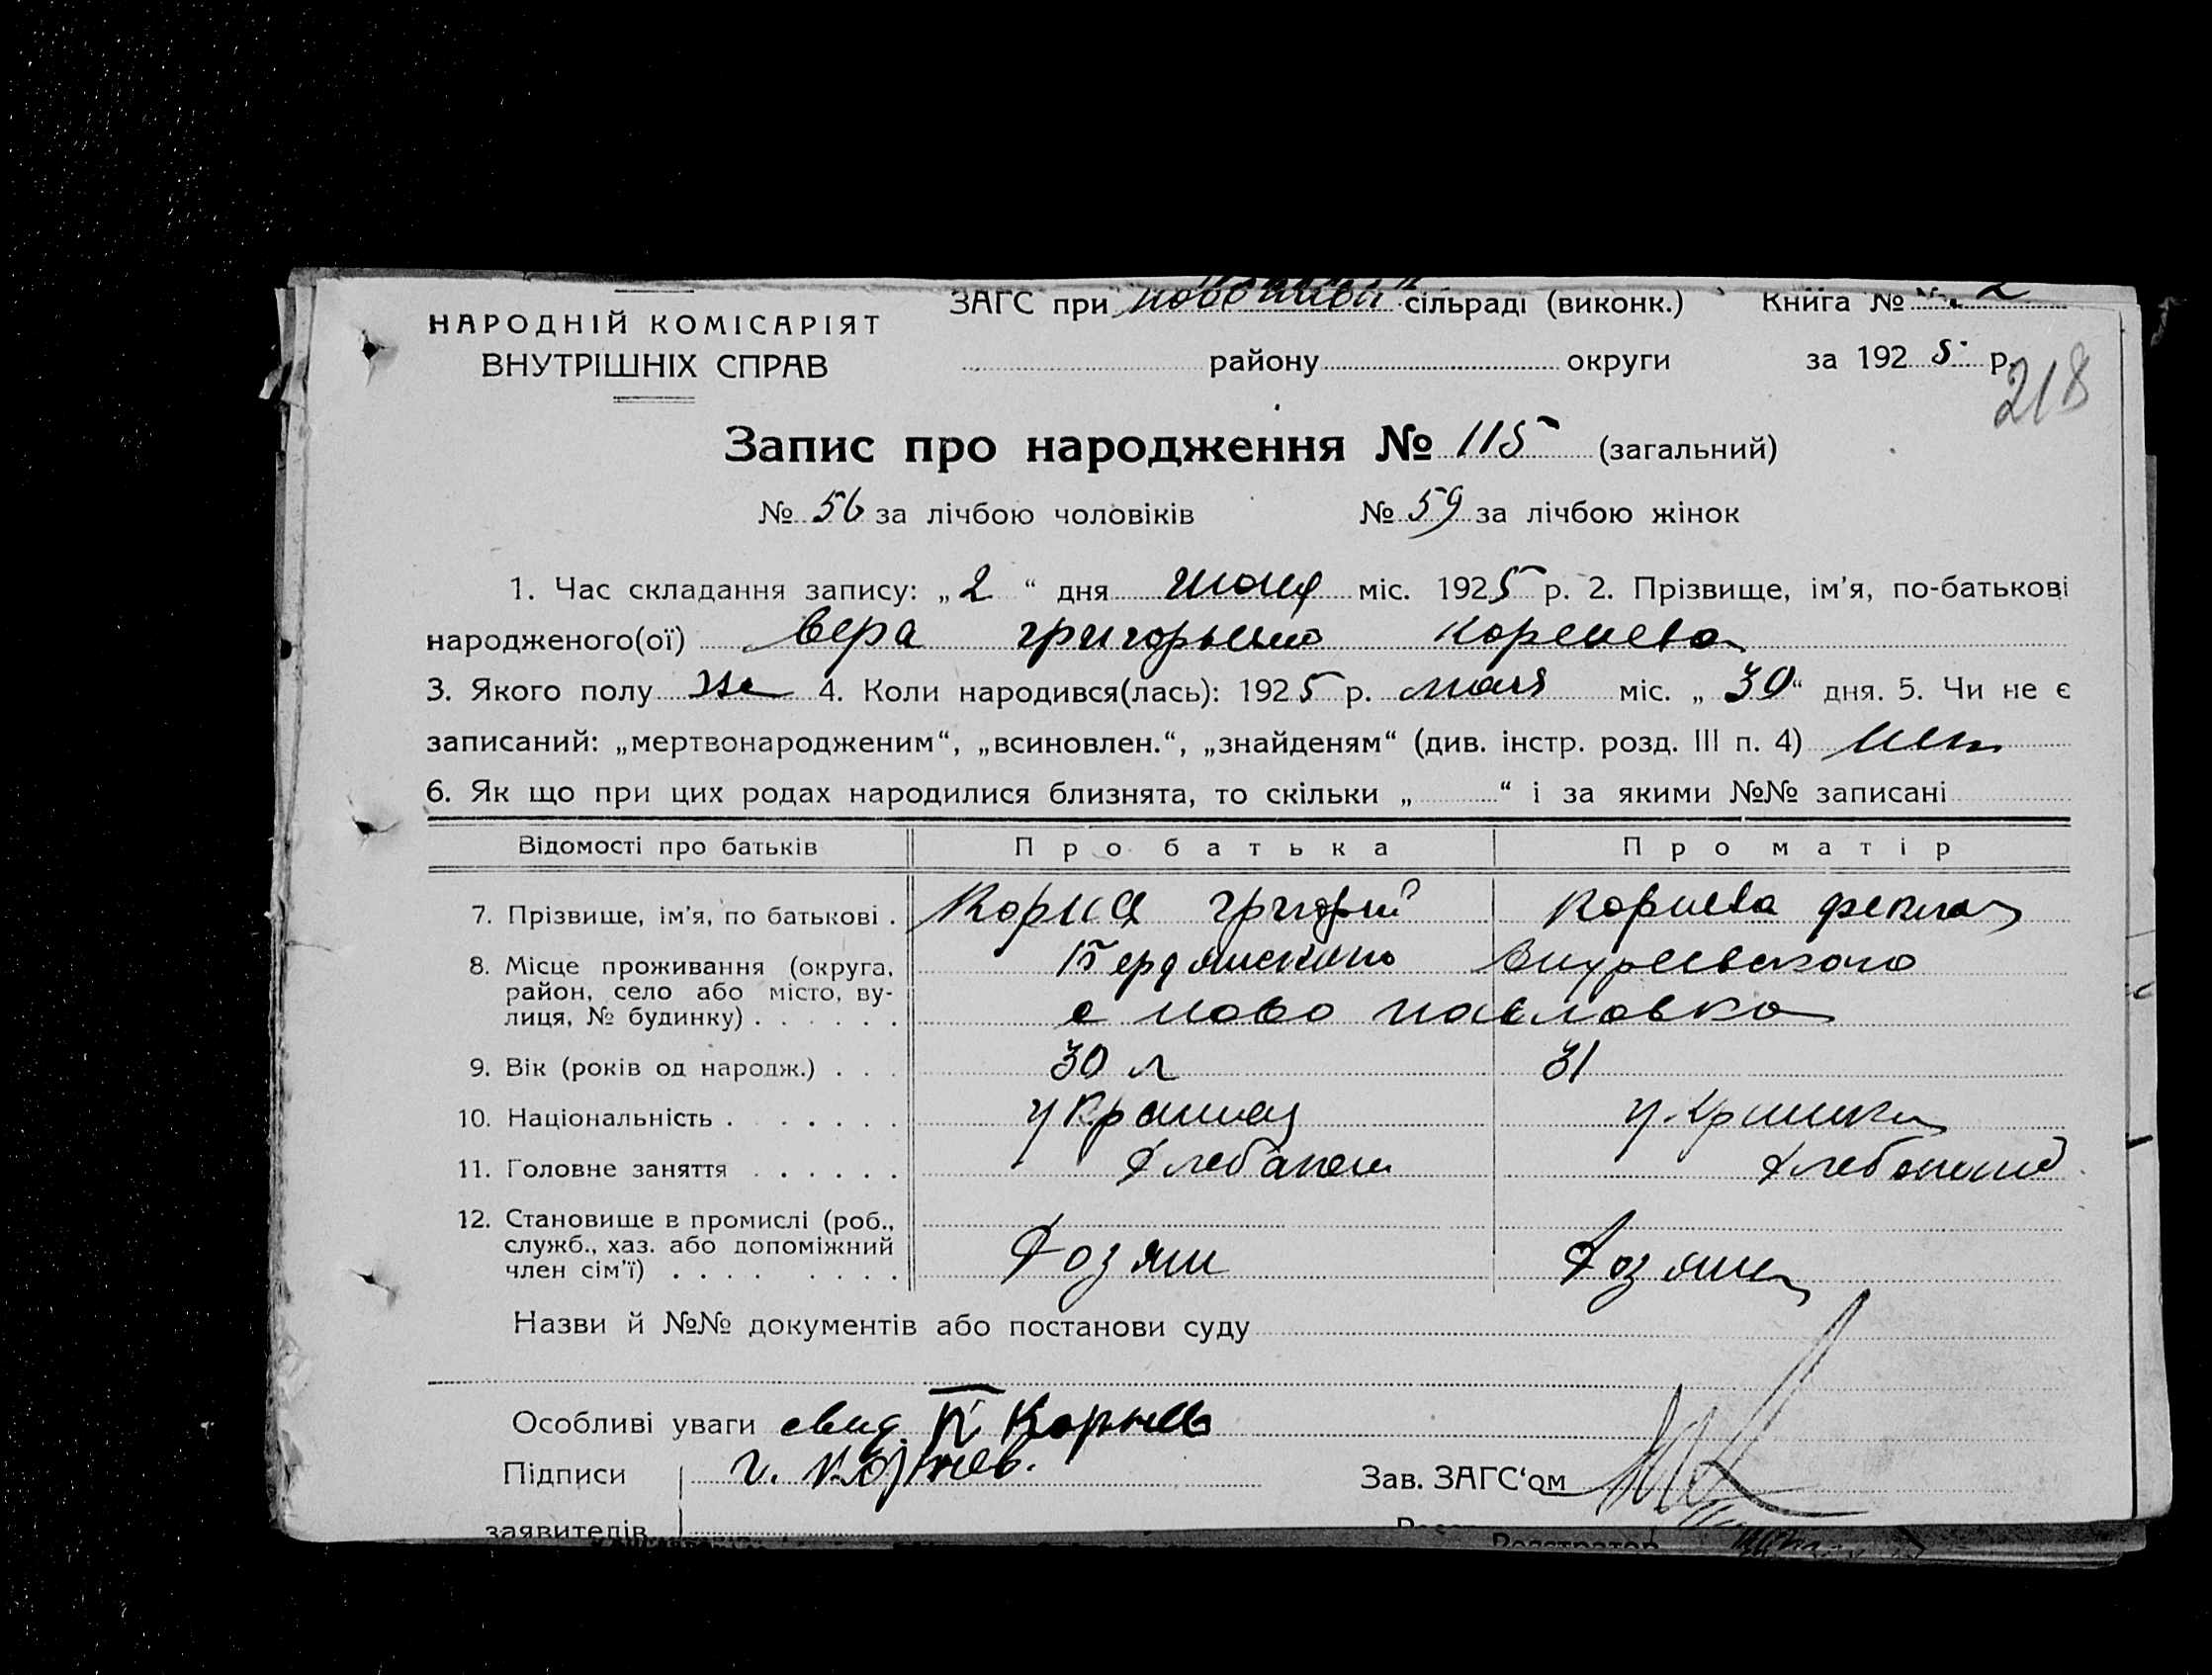 ЗАГС при сільраді (виконк.) Книга № 2
НАРОДНІЙ КОМІСАРІЯТ
ВНУТРІШНІХ СПРАВ
району округи за 1925 р.
218
Запис про народження № 115 (загальний)
№ 56 за лічбою чоловіків № 59 за лічбою жінок
1. Час складання запису: „2“ дня июня міс. 1925 р. 2. Прізвище, ім’я, по-батькові
народженого(ої) Вера Григорьевна Корнева
3. Якого полу же 4. Коли народився(лась): 1925 р. мая міс. „30“ дня. 5. Чи не є
записаний: „мертвонародженим“, „всиновлен.“, „знайденям“ (див. інстр. розд. III п. 4) нет
6. Як що при цих родах народилися близнята, то скільки „ “ і за якими №№ записані
Відомості про батьків Про батька Про матір
7. Прізвище, ім’я, по батькові . Григорий Корнева Фекла
8. Місце проживання (округа, Бердянского
район, село або місто, ву-
лиця, № будинку) . . . . . . с Ново Павловка
9. Вік (років од народж.) . . . 30 л 31
10. Національність . . . . . . .
11. Головне заняття . . . . . .
12. Становище в промислі (роб.,
служб., хаз. або допоміжний
член сім’ї) . . . . . . . . . Хозяин Хозяйка
Назви й №№ документів або постанови суду
Особливі уваги свид. П Корнев
Підписи Г. Корнев. Зав. ЗАГС‘ом
заявителів
Реєстратор